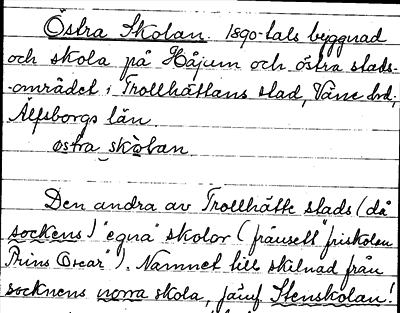 Östra Skolan. 1890-tals byggnad
och skola på Håjum och östra stads-
-området i Trollhättans stad, Väne hd,
Älfsborgs län.
östra skolan
Den andra av Trollhätte stads (då
sockens) "egna" skolor (frånsett "friskolan
Prins Oscar"). Namnet till skilnad från
socknens norra skola, jämf Stenskolan!